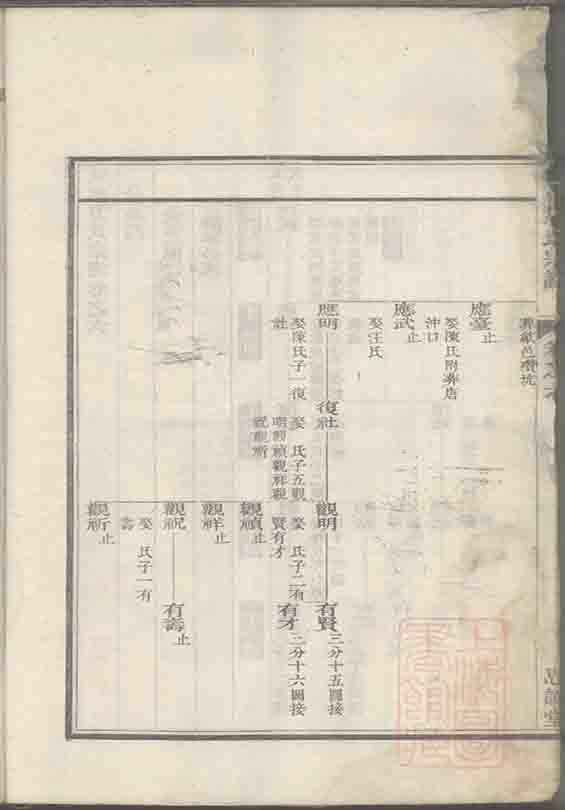 葬歙邑瓚坑
應臺止
娶陳氏附葬唐
沖口
應武止
娶汪氏
應明
娶陳氏子一復
社
復社
娶 氏子五觀
明觀禎觀祥觀
祝觀祈
觀明
娶 氏子二有
賢有才
有賢
三分十五圖接
有才
三分十六圖接
觀禎止
觀祥止
觀祝
娶 氏子一有
壽
有壽止
觀祈止